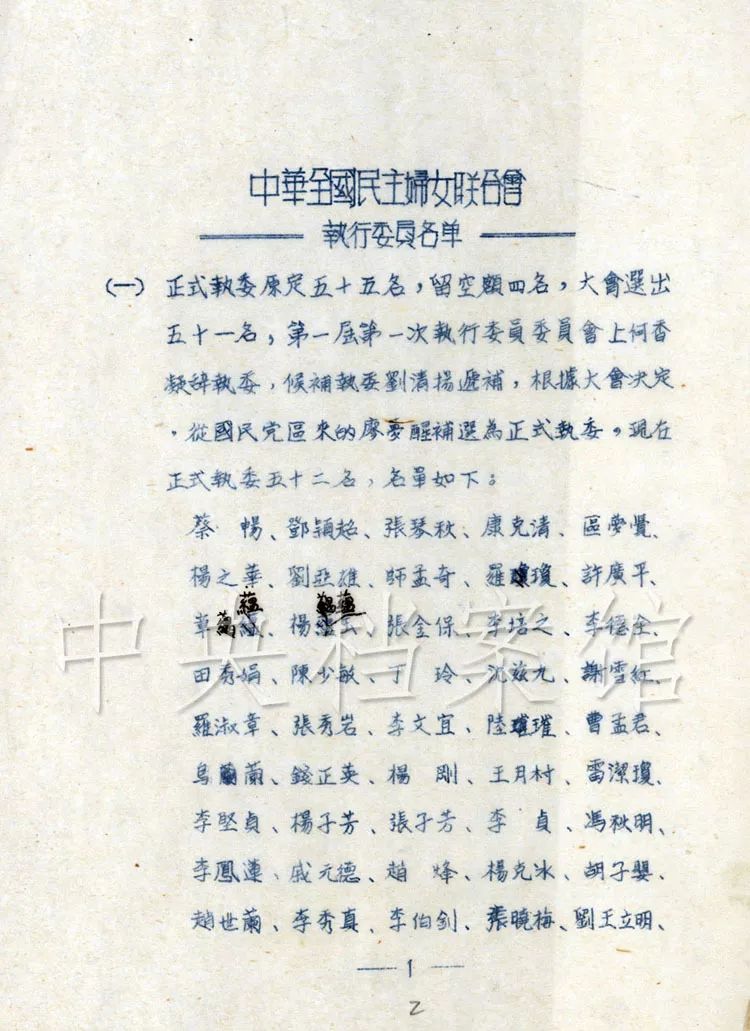 中華全國民主婦女联合會
執行委員名单
(一) 正式執委原定五十五名，留空額四名，大會選出
五十一名，第一屆第一次執行委員委員會上何香
凝辞執委，候補執委劉清揚遞補，根據大會決定
，從國民党區來的廖夢醒補選為正式執委。現在
正式執委五十二名，名單如下：
蔡暢、鄧頴超、張琴秋、康克清、區夢覺、
楊之華、劉亞雄、帥孟奇、羅瓊、許廣平、
章蘊、楊蘊玉、張金保、李培之、李德全、
田秀娟、陳少敏、丁玲、沈兹九、謝雪紅、
羅淑章、張秀岩、李文宜、陸璀、曹孟君、
烏蘭、錢正英、楊剛、王月村、雷潔瓊、
李堅貞、楊子芳、張子芳、李貞、馮秋明、
李鳳蓮、戚元德、趙烽、楊克冰、胡子嬰、
趙世蘭、李秀真、李伯釗、張曉梅、劉王立明、
— 1 —
2
中央档案馆